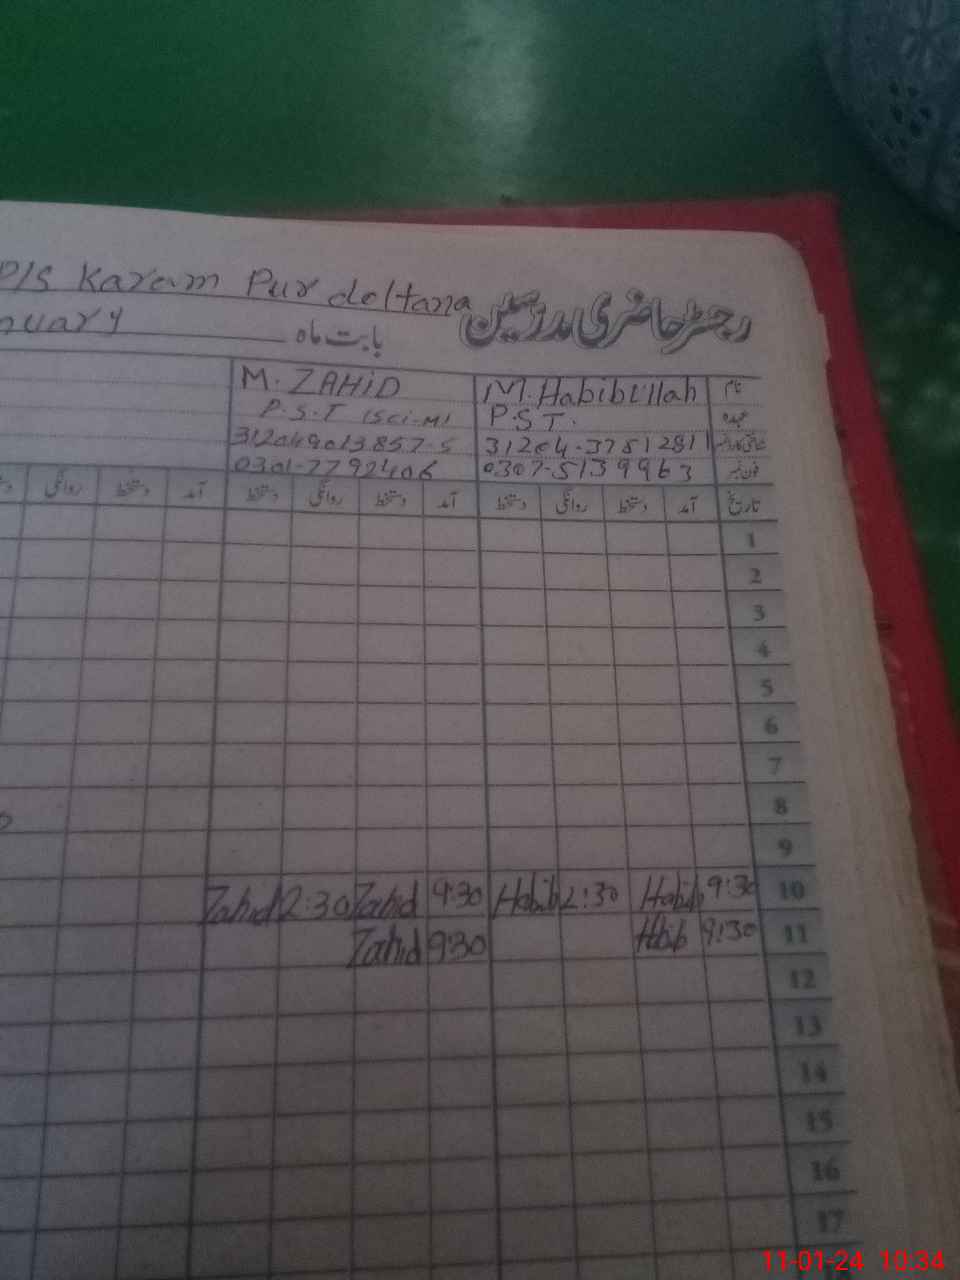 P/S Karam Pur doltana
رجسٹر حاضری مدرسین
nuary بابت ماہ
M. ZAHID M. Habibullah نام
P.S.T (Sci-M) P.S.T. عہدہ
312049013857-5 31204-3781281 شناختی کارڈ نمبر
0301-7792406 0307-5139963 فون نمبر
روانگی دستخط آمد دستخط روانگی دستخط آمد دستخط روانگی دستخط آمد تاریخ
1
2
3
4
5
6
7
8
9
Zahid 2:30 Zahid 9:30 Habib 2:30 Habib 9:30 10
Zahid 9:30 Habib 9:30 11
12
13
14
15
16
17
11-01-24 10:34